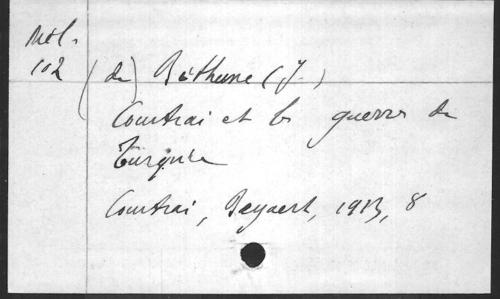 Mél.
102
(de) Béthune (J.)
Courtrai et les guerres de
Turquie
Courtrai, Beyaert, 1913, 8